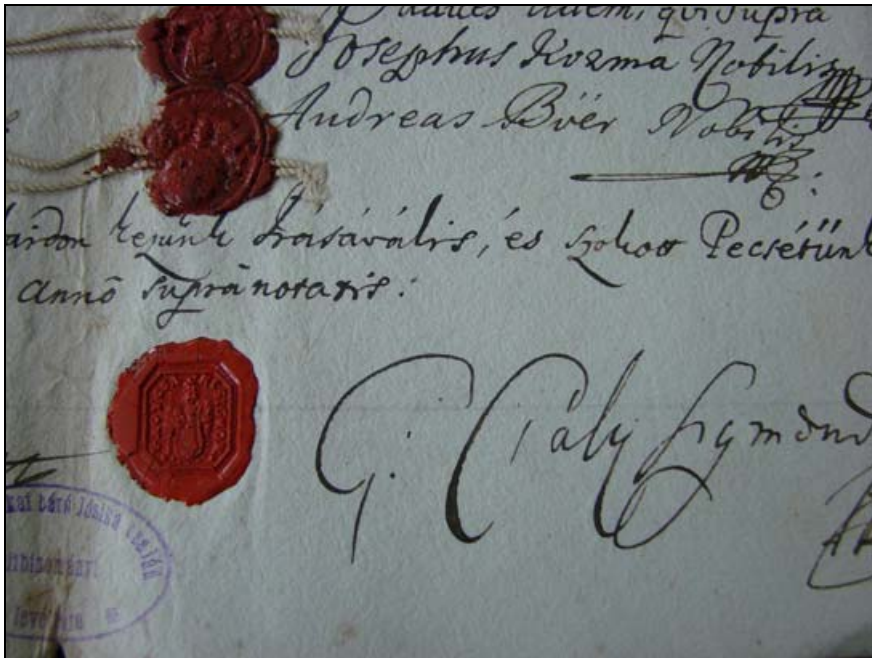 idem, qui supra
Josephus Kozma Nobilis
Andreas Bóér Nobilis
kezünk Irásávális, és szokott Pecsétünk
Annō suprānotatis:
G: Csáky Sigmond
báró Jósika család
hitbizományi
levéltára